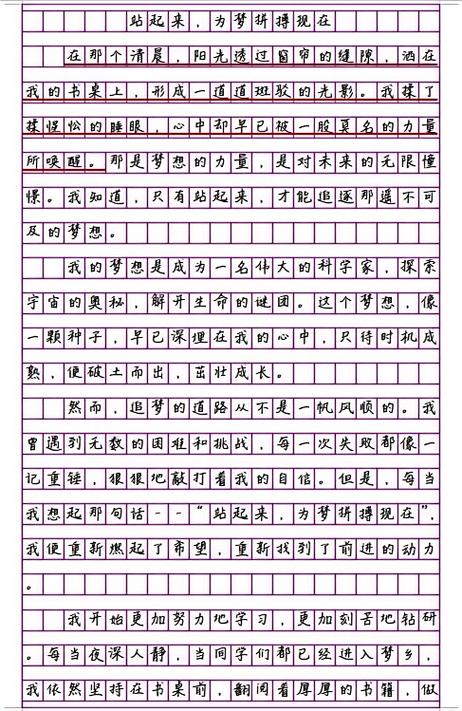 站起来，为梦拼搏现在
在那个清晨，阳光透过窗帘的缝隙，洒在
我的书桌上，形成一道道斑驳的光影。我揉了
揉惺忪的睡眼，心中却早已被一股莫名的力量
所唤醒。那是梦想的力量，是对未来的无限憧
憬。我知道，只有站起来，才能追逐那遥不可
及的梦想。
我的梦想是成为一名伟大的科学家，探索
宇宙的奥秘，解开生命的谜团。这个梦想，像
一颗种子，早已深埋在我的心中，只待时机成
熟，便破土而出，茁壮成长。
然而，追梦的道路从不是一帆风顺的。我
曾遇到无数的困难和挑战，每一次失败都像一
记重锤，狠狠地敲打着我的自信。但是，每当
我想起那句话--“站起来，为梦拼搏现在”，
我便重新燃起了希望，重新找到了前进的动力
。
我开始更加努力地学习，更加刻苦地钻研
。每当夜深人静，当同学们都已经进入梦乡，
我依然坚持在书桌前，翻阅着厚厚的书籍，做